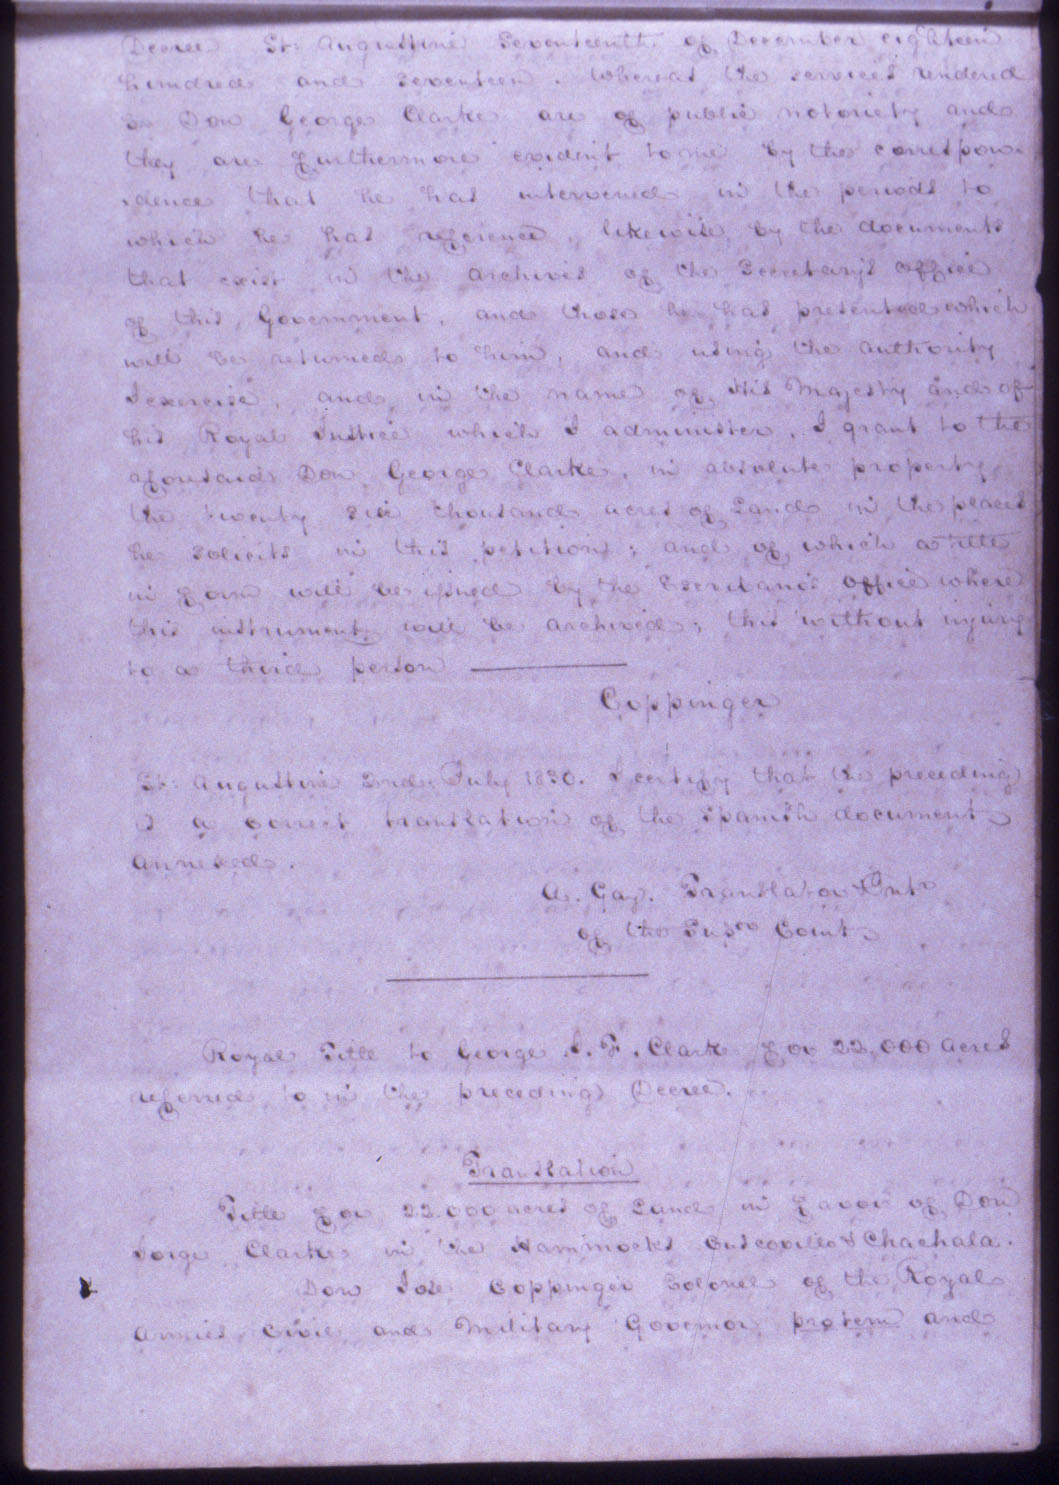 Decree St: Augustine Seventeenth of December eighteen
hundred and seventeen. Whereas the services rendered
by Don George Clarke are of public notoriety and
they are furthermore evident to me by the correspon-
dence that he has intervened in the periods to
which he has reference, likewise by the documents
that exist in the archives of the Secretary's office
of this Government, and those he has presented which
will be returned to him, and using the authority
I exercise, and in the name of His Majesty and of
his Royal Justice which I administer, I grant to the
aforesaid Don George Clarke, in absolute property,
the twenty six thousand acres of Land in the places
he solicits in this petition; and of which a title
in form will be issued by the Escribano's office where
this instrument will be archived; this without injury
to a third person
Coppinger
St: Augustine 2nd. July 1830. I certify that the preceding
is a correct translation of the Spanish document
annexed.
A. Gay. Translator & Intr
of the Supro Court
Royal Title to George I. F. Clark for 22,000 acres
referred to in the preceding Decree.
Translation
Title for 22.000 acres of Land in favor of Don
Jorge Clarke in the Hammocks & Chachala.
Don Jose Coppinger Colonel of the Royal
Armies, Civil and Military Governor protem and